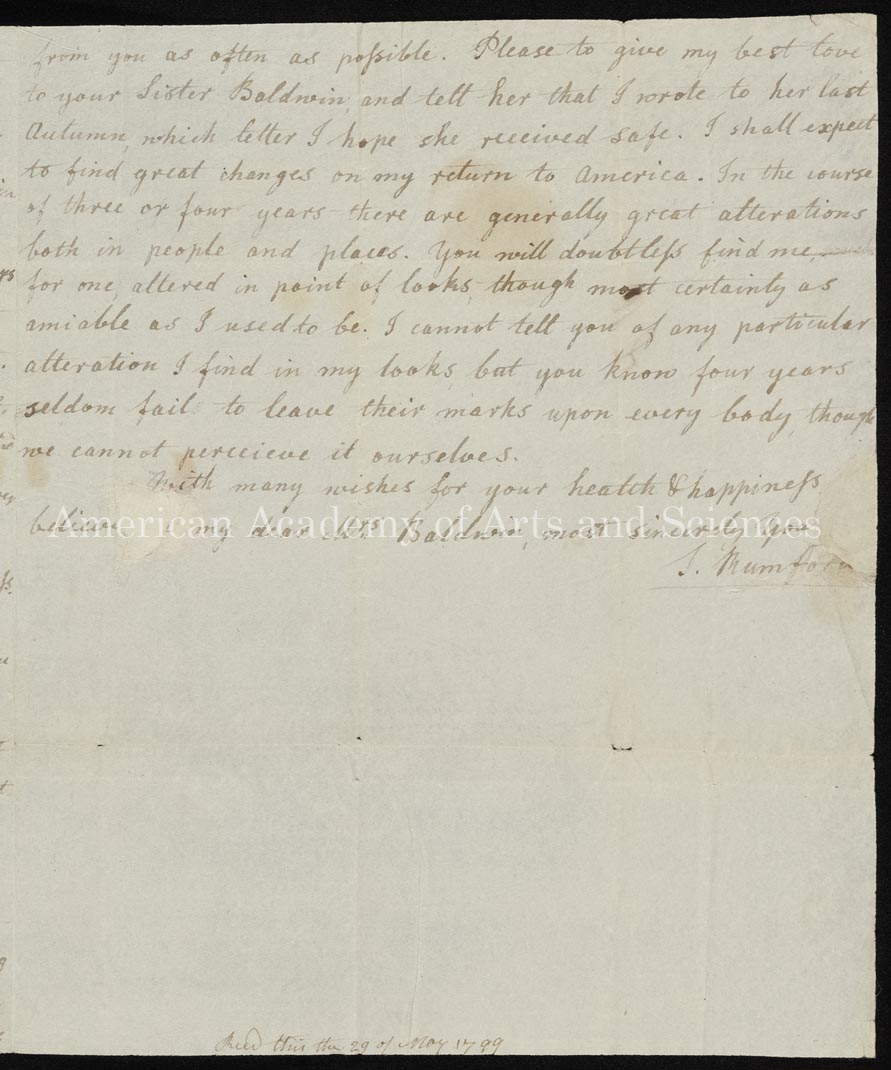 from you as often as poſsible. Please to give my best love
to your Sister Baldwin, and tell her that I wrote to her last
Autumn, which letter I hope she received safe. I shall expect
to find great changes on my return to America. In the course
of three or four years there are generally great alterations
both in people and places. You will doubtleſs find me,
for one, altered in point of looks, though most certainly as
amiable as I used to be. I cannot tell you of any particular
alteration I find in my looks, but you know four years
seldom fail to leave their marks upon every body, though
we cannot percieieve it ourselves.
With many wishes for your health & happineſs
believe my dear Mrs Baldwin, most sincerely
S. Rumford
American Academy of Arts and Sciences
Recd this the 29 of May 1799